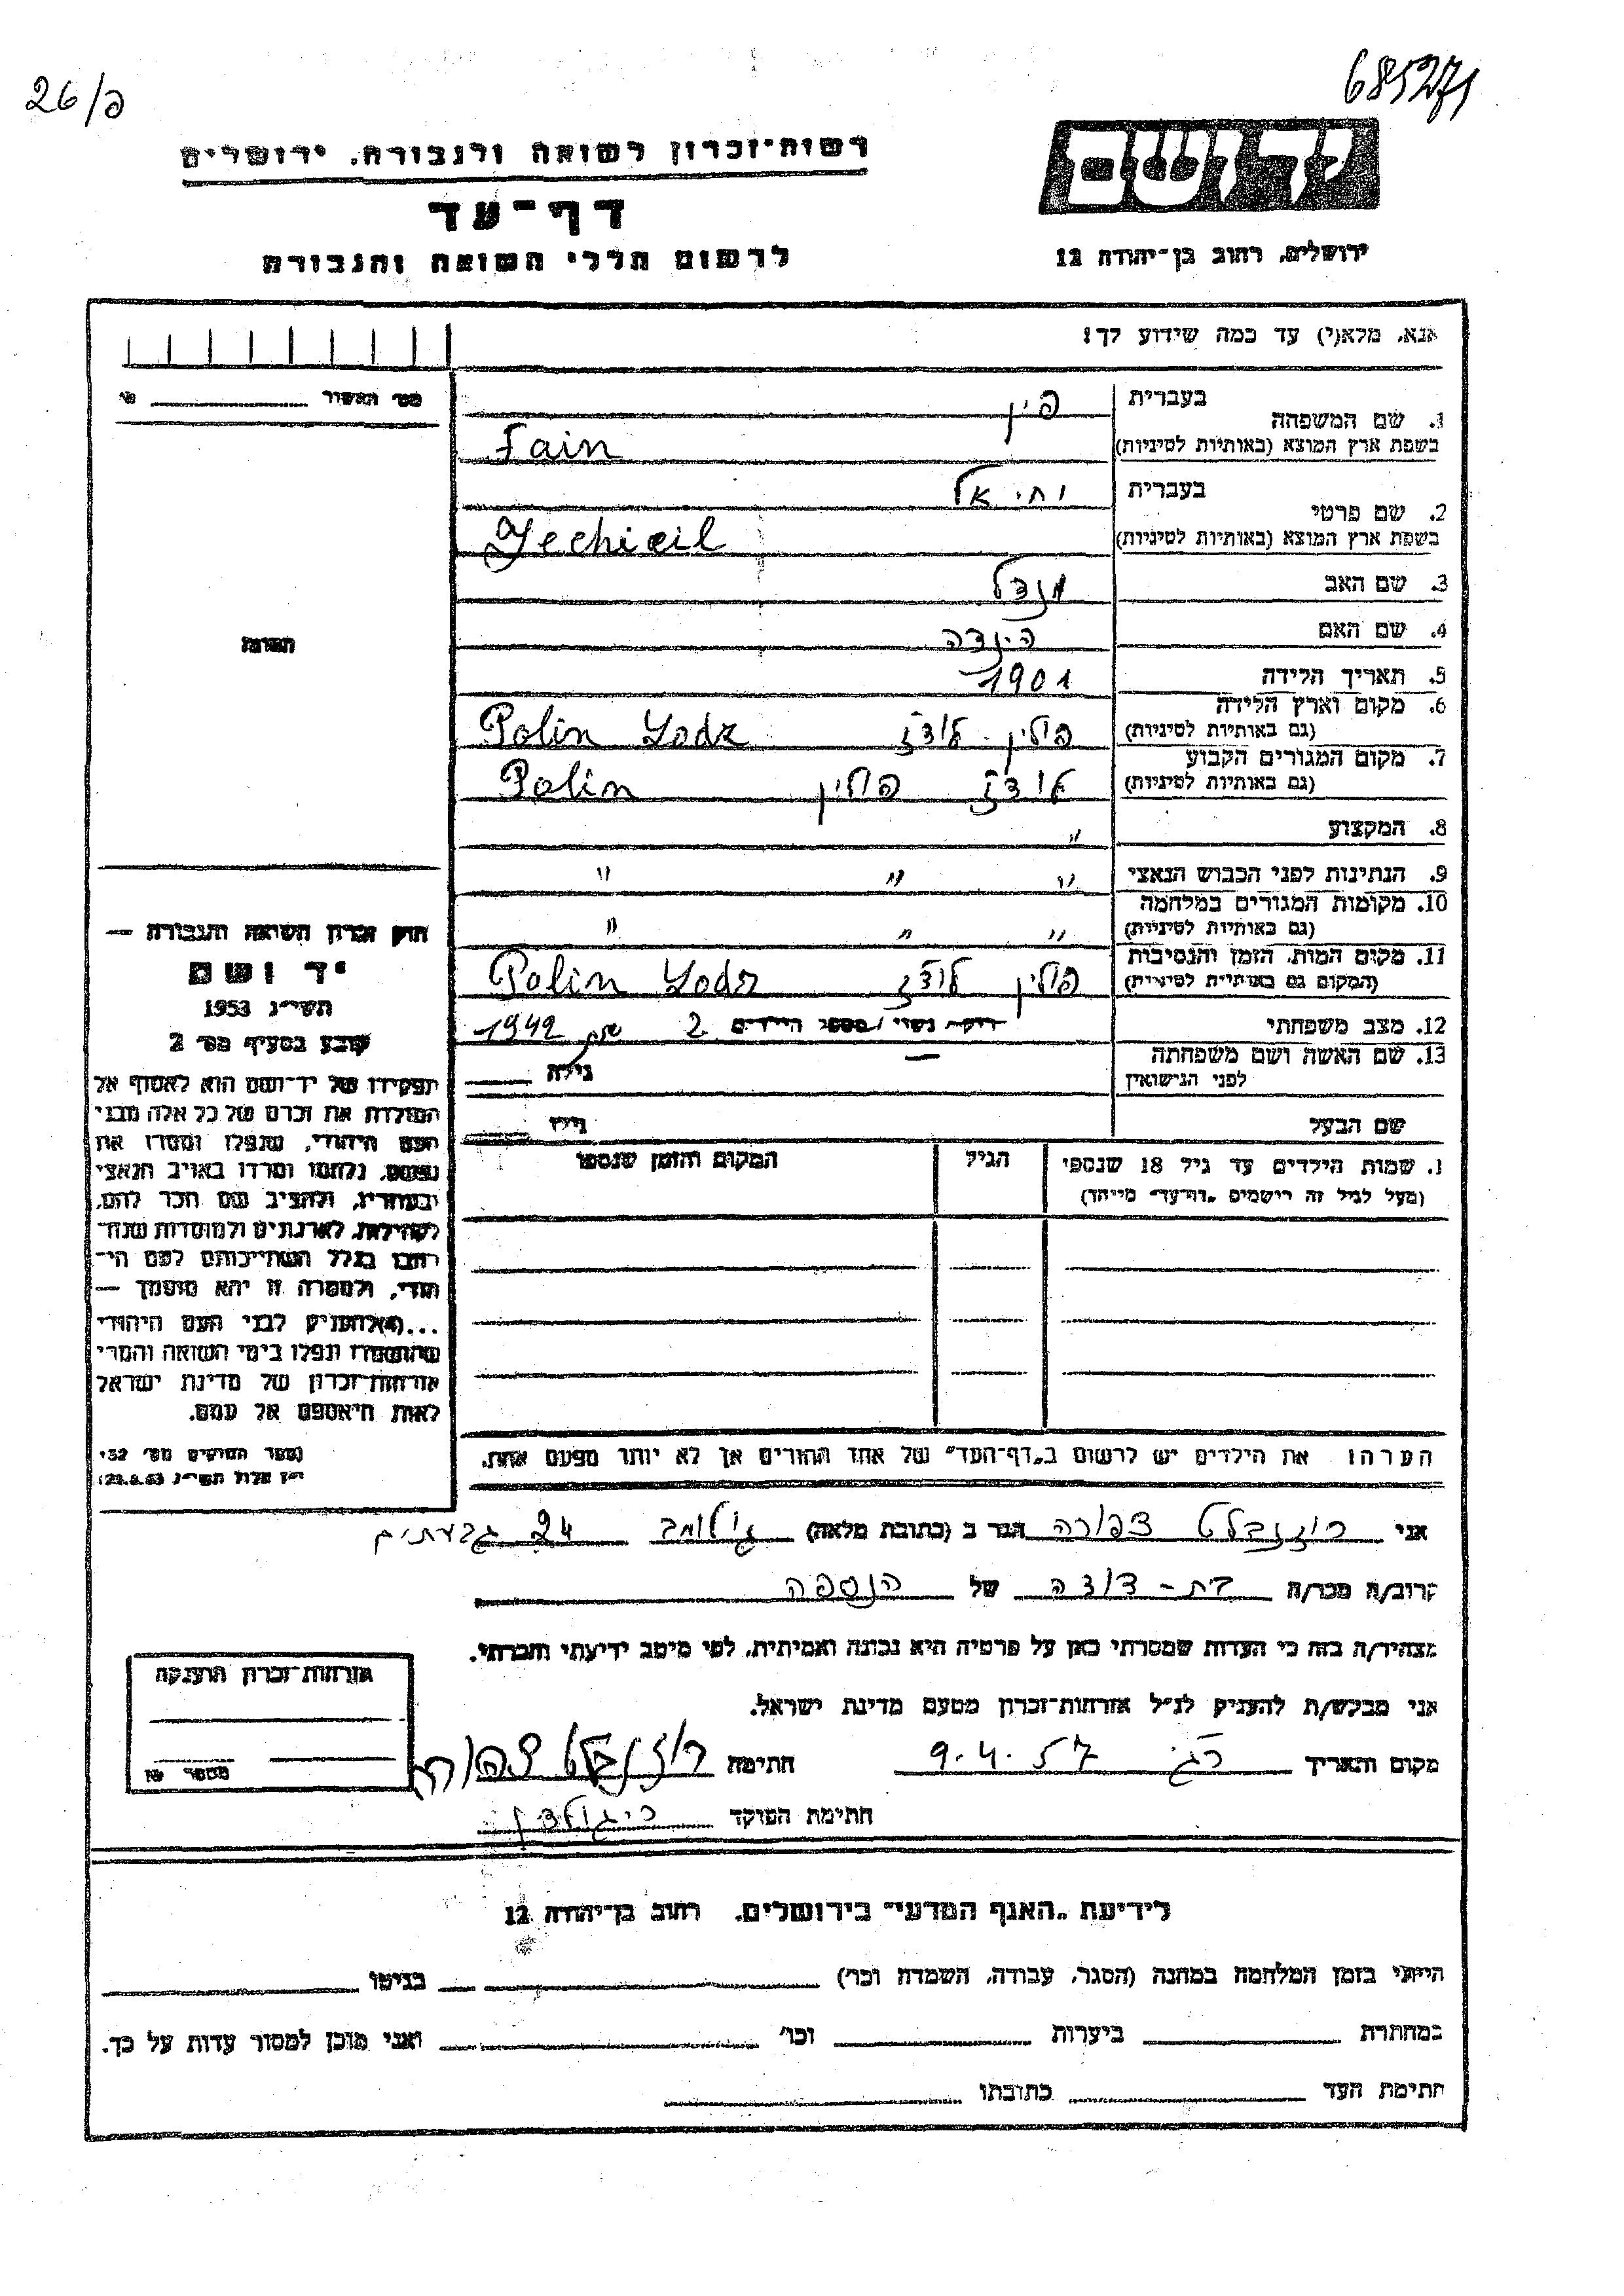 26/פ
685271
רשות־זכרון לשואה ולגבורה, ירושלים
דף־עד
לרשום חללי השואה והגבורה
יד ושם
ירושלים, רחוב בן־יהודה 12
אנא, מלא(י) עד כמה שידוע לך!
מס׳ האשור
1. שם המשפחה
בעברית פין
בשפת ארץ המוצא (באותיות לטיניות) Fain
2. שם פרטי
בעברית יחיאל
בשפת ארץ המוצא (באותיות לטיניות) Jechieil
3. שם האב מנדל
4. שם האם הינדה
5. תאריך הלידה 1901
6. מקום וארץ הלידה
(גם באותיות לטיניות) פולין - לודז Polin Lodz
7. מקום המגורים הקבוע
(גם באותיות לטיניות) לודז פולין Polin
8. המקצוע "
9. הנתינות לפני הכבוש הנאצי " " "
10. מקומות המגורים במלחמה
(גם באותיות לטיניות) " " "
11. מקום המות, הזמן והנסיבות
(המקום גם באותיות לטיניות) פולין לודז Polin Lodz
12. מצב משפחתי רווק, נשוי / מספר הילדים 2 1942
13. שם האשה ושם משפחתה
לפני הנישואין — גילה
שם הבעל גילו
שמות הילדים עד גיל 18 שנספו
(מעל לגיל זה רישמים „דף־עד״ מיוחד)
הגיל
המקום והזמן שנספו
הערה: את הילדים יש לרשום ב„דף־העד״ של אחד ההורים אך לא יותר מפעם אחת.
תמונה
חוק זכרון השואה והגבורה —
יד ושם
תשי״ג 1953
קובע בסעיף מס׳ 2
תפקידו של יד־ושם הוא לאסוף אל
המולדת את זכרם של כל אלה מבני
העם היהודי, שנפלו ומסרו את
נפשם, נלחמו ומרדו באויב הנאצי
ובעוזריו, ולהציב שם וזכר להם,
לקהילות, לארגונים ולמוסדות שנח־
רבו בגלל השתייכותם לעם הי־
הודי, ולמטרה זו יהא מוסמך —
...(4)להעניק לבני העם היהודי
שהושמדו ונפלו בימי השואה והמרי
אזרחות־זכרון של מדינת ישראל
לאות היאספם אל עמם.
(ספר החוקים מס׳ 132
י״ז אלול תשי״ג 28.8.53)
אני רוזנבלט צפורה הגר ב (כתובת מלאה) גולומב 24 גבעתיים
קרוב/ה מכר/ה בת-דודה של הנספה
מצהיר/ה בזה כי העדות שמסרתי כאן על פרטיה היא נכונה ואמיתית, לפי מיטב ידיעתי והכרתי.
אני מבקש/ת להעניק לנ״ל אזרחות־זכרון מטעם מדינת ישראל.
מקום ותאריך 9.4.57 חתימה רוזנבלט צפורה
חתימת הפוקד
אזרחות־זכרון הוענקה
מספר
לידיעת „האגף המדעי״ בירושלים, רחוב בן־יהודה 12
הייתי בזמן המלחמה במחנה (הסגר, עבודה, השמדה וכו׳) בגיטו
במחתרת ביערות וכו׳ ואני מוכן למסור עדות על כך.
חתימת העד כתובתו